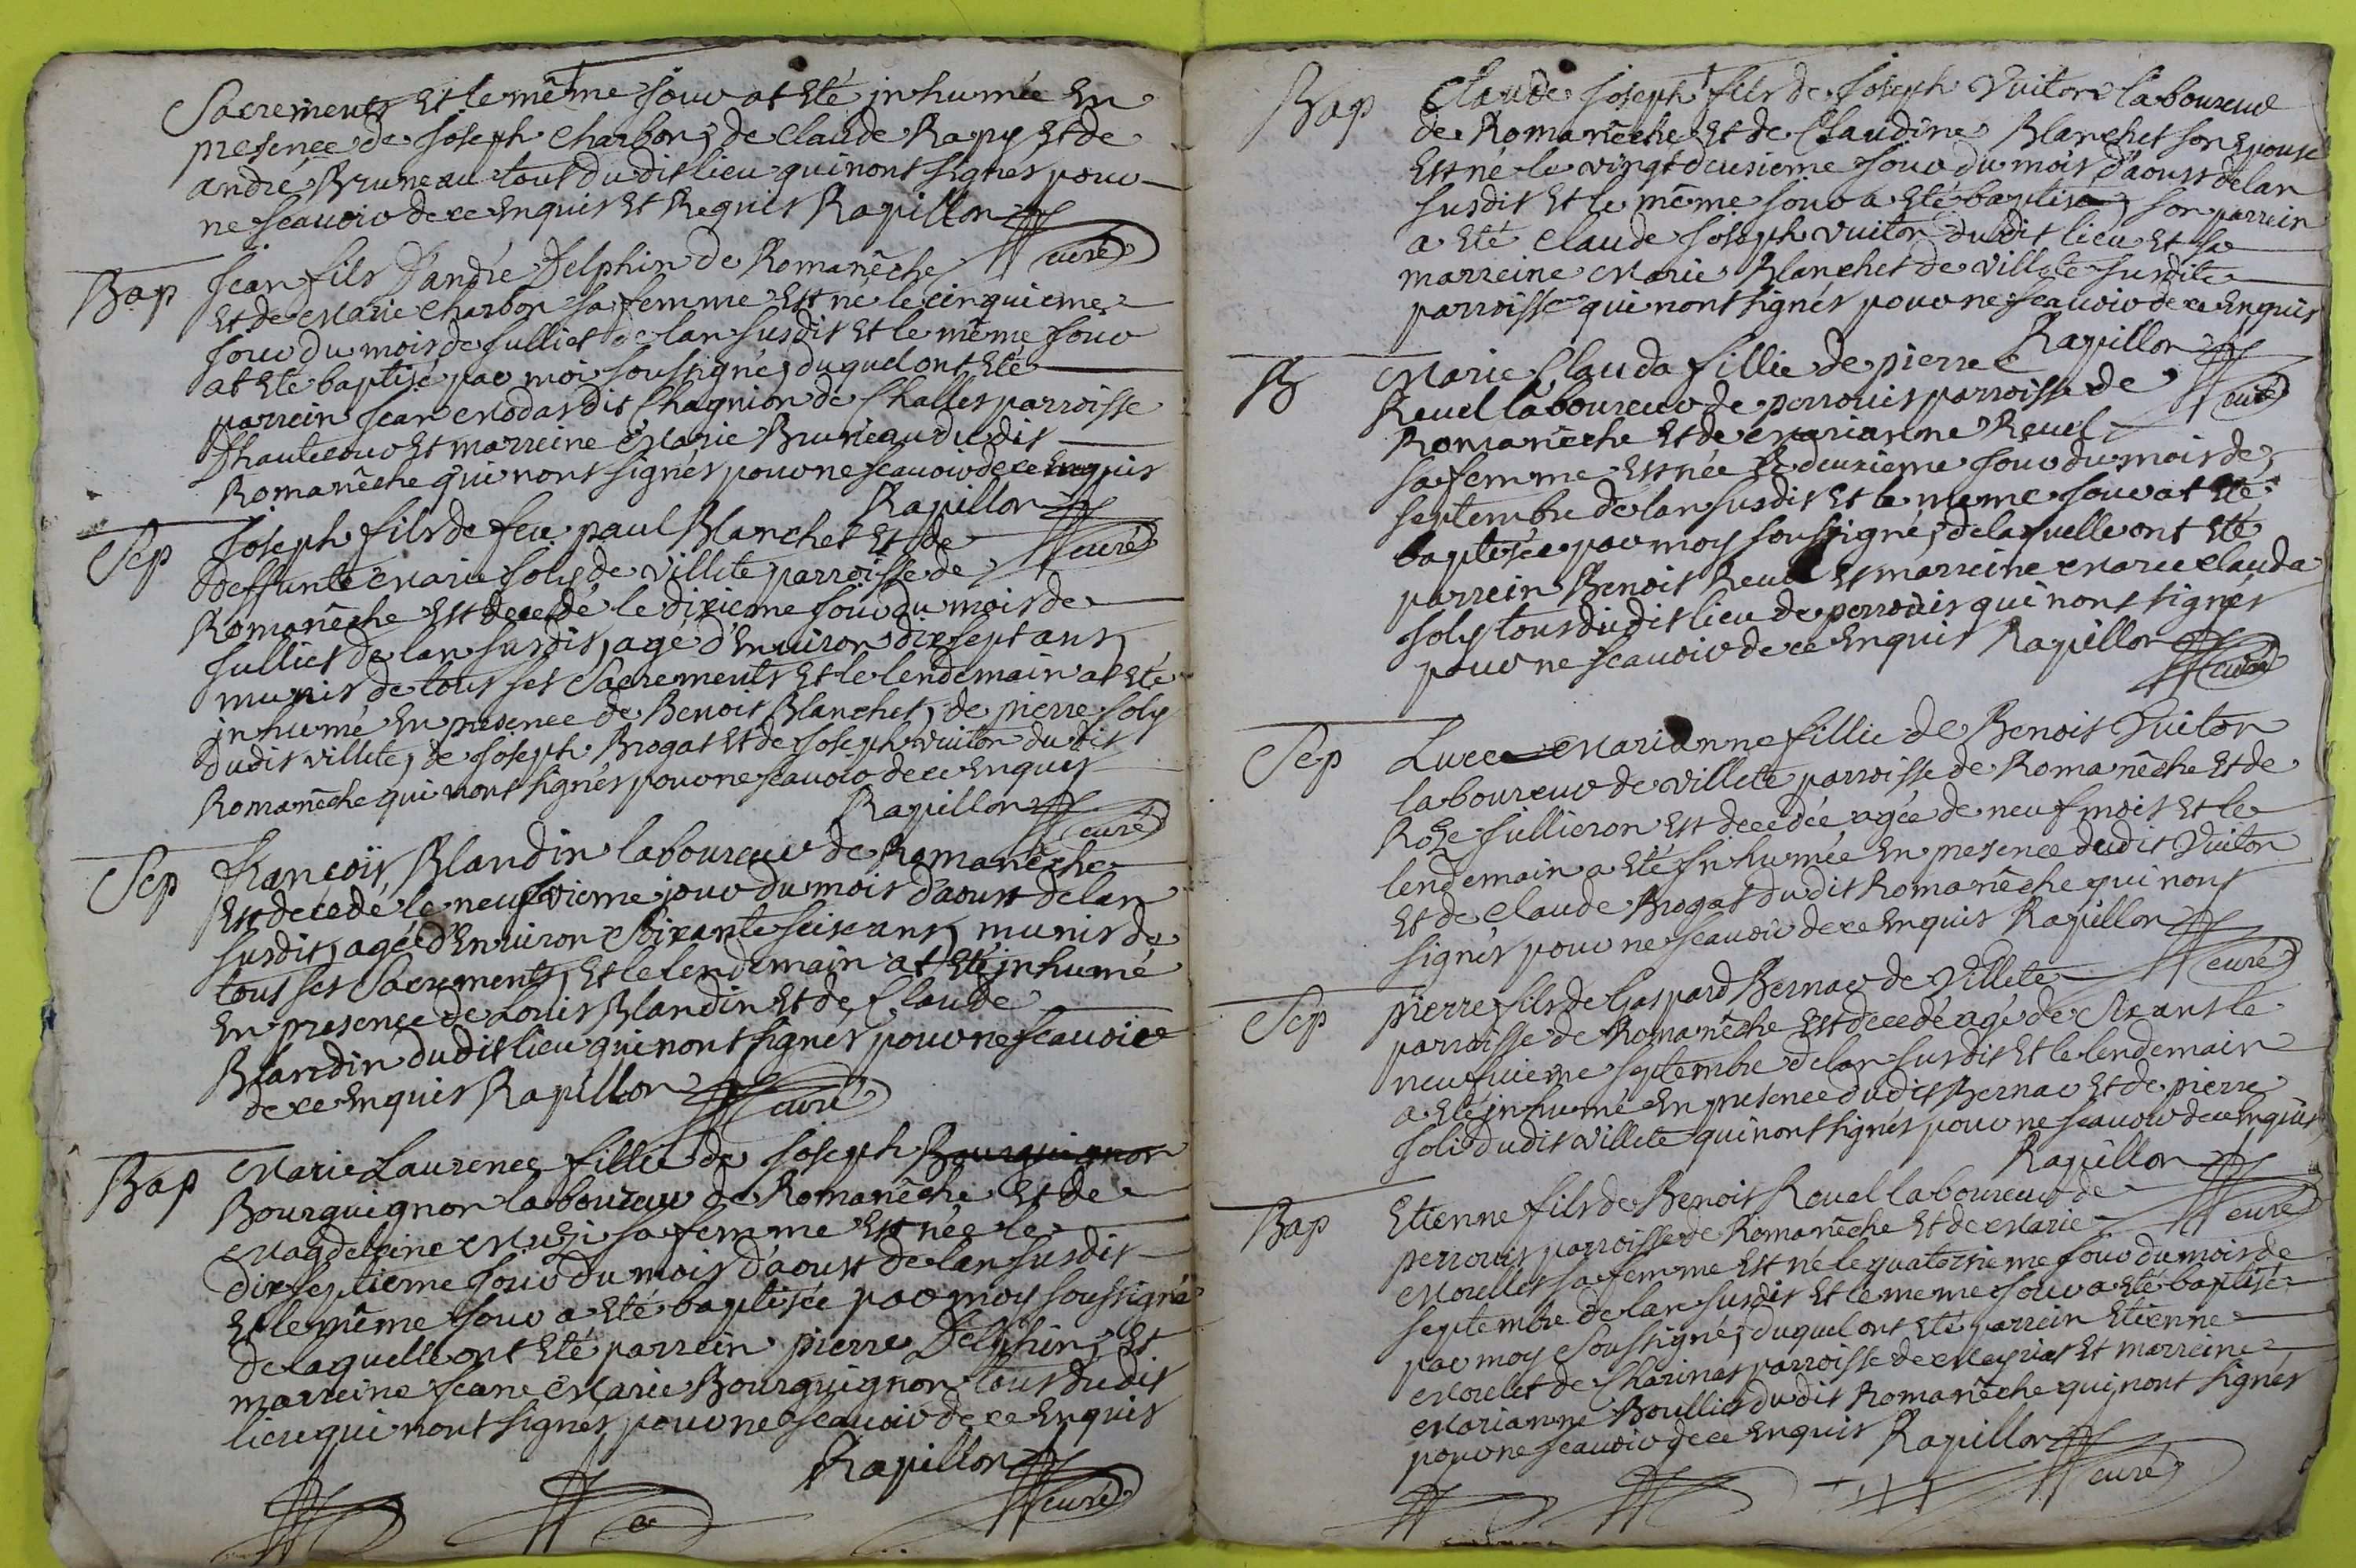 Sacrements Et le même jour at Eté inhumée En
presence de Joseph Charbon, de Claude Rapy Et de
andré Bruneau tous du dit lieu qui nont signés pour
ne scauoir de ce Enquis Et Requis Rapillon
curé
Bap
Jean fils D'andre Delphin de Romanêche
Et de Marie Charbon sa femme Est né le cinquieme
jour du mois de Julliet de lan susdit Et le même jour
at Eté baptisé par moi soussigné, duquel ont Eté
parrein Jean Modas dit Chagnion de Challes parroisse
Dhautecour Et marreine Marie Bruneau du dit
Romanêche qui nont signés pour ne scauoir de ce Enquis
Rapillon
curé
Sep
Joseph fils de feu paul Blanchet Et de
deffunte Marie Joly de Villete parroisse de
Romanêche Est decedé le dixieme jour du mois de
Julliet de lan susdit, agé d'Enuiron dix sept ans,
munis de tous ses Sacrements Et le lendemain at Eté
inhumé En presence de Benoit Blanchet, de pierre Joly
dudit villete, de Joseph Brogat Et de Joseph Vuiton du dit
Romanêche qui nont signés pour ne scauoir de ce Enquis
Rapillon
curé
Sep
Francoïs Blandin laboureur de Romanêche
Est decedé le neufvieme jour du mois d'aoust de lan
susdit, agé d'Enuiron Soixante seise ans, munis de
tous ses Sacrements, Et le lendemain at Eté inhumé
En presence de Louis Blandin Et de Claude
Blandin dudit lieu qui nont signés pour ne scauoir
de ce Enquis Rapillon
curé
Bap
Marie Laurence fillie de Joseph Bourguignon
Bourguignon laboureur de Romanêche Et de
Magdeleine sa femme Est née le
dix septieme jour du mois d'aoust de lan susdit
Et le même jour a Eté baptisée par moy soussigné
de laquelle ont Eté parrein pierre Delphin, Et
marreine Jeane Marie Bourguignon tous dudit
lieu qui nont signés pour ne scauoir de ce Enquis
Rapillon
curé
Bap
Claude Joseph fils de Joseph Vuiton laboureur
de Romanêche Et de Claudine Blanchet son Epouse
Est né le vingt deusieme jour du mois d'aoust de lan
susdit Et le même jour a Eté baptisé, son parrein
a Eté Claude Joseph Vuiton du dit lieu Et sa
marreine Marie Blanchet de Villete susdite
parroisse qui nont signés pour ne scauoir de ce Enquis
Rapillon
curé
B
Marie Clauda fillie de pierre
Reuel laboureur de perrouis parroisse de
Romanêche Et de Marianne Reuel
sa femme Est née le deuxieme jour du mois de
septembre de lan susdit Et le meme jour at Eté
baptisée par moy soussigné, de laquelle ont Eté
parrein Benoit Reuel Et marreine Marie Clauda
Joly tous du dit lieu de perrouis qui nont signés
pour ne scauoir de ce Enquis Rapillon
curé
Sep
Luce Marianne fillie de Benoit Vuiton
laboureur de villete parroisse de Romanêche Et de
Rose Jullieron Est decedée agée de neuf mois Et le
lendemain a Eté Inhumée En presence dudit Vuiton
Et de Claude Brogat du dit Romanêche qui nont
signés pour ne scauoir de ce Enquis Rapillon
curé
Sep
pierre fils de Gaspard Bernar de Villete
parroisse de Romanêche Est decedé agé de Six ans le
neufuieme septembre de lan susdit Et le lendemain
a Eté inhumé En présence du dit Bernar Et de pierre
Joli dudit Villete qui nont signés pour ne scauoir de ce Enquis
Rapillon
curé
Bap
Etienne fils de Benoit Reuel laboureur de
perrouis parroisse de Romanêche Et de Marie
Morellet sa femme Est né le quatorsieme jour du mois de
septembre de lan susdit Et le meme jour a Eté baptisé
par moy Soussigné, duquel ont Eté parrein Etienne
Morelet de Charinas parroisse de Meyriat Et marreine
Marianne Boullier du dit Romanêche qui nont signés
pour ne scauoir de ce Enquis Rapillon
curé